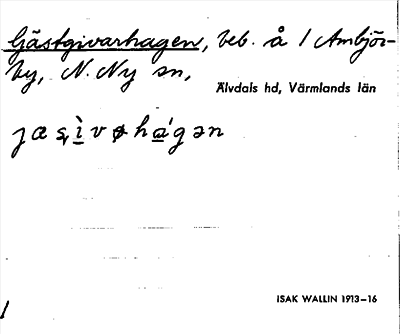 Gästgivarhagen, beb. å 1 Ambjör-
by, N. Ny sn,
Älvdals hd, Värmlands län
ISAK WALLIN 1913–16
1